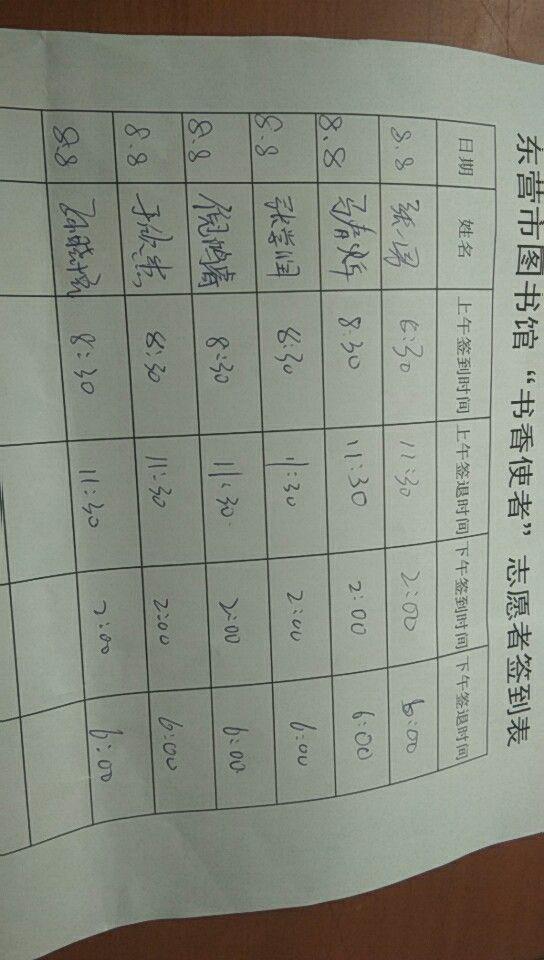 东营市图书馆“书香使者”志愿者签到表
日期 姓名 上午签到时间 上午签退时间 下午签到时间 下午签退时间
8.8 8:30 11:30 2:00 6:00
8.8 8:30 11:30 2:00 6:00
8.8 张学闰 8:30 11:30 2:00 6:00
8.8 8:30 11:30 2:00 6:00
8.8 于欣 8:30 11:30 2:00 6:00
8.8 8:30 11:30 2:00 6:00